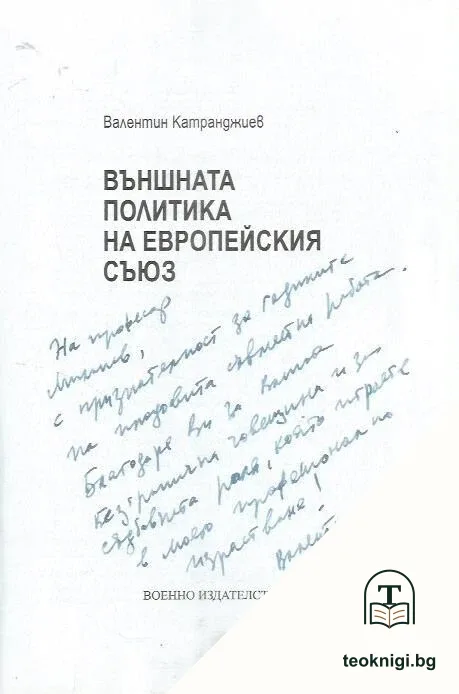 Валентин Катранджиев
ВЪНШНАТА
ПОЛИТИКА
НА ЕВРОПЕЙСКИЯ
СЪЮЗ
На професор
с признателност за годините
на плодовита съвместна работа.
Благодаря Ви за Вашата
безгранична човещина и за
съдбовната роля, която играете
в моето професионално
израстване!
ВОЕННО ИЗДАТЕЛСТ
T
teoknigi.bg